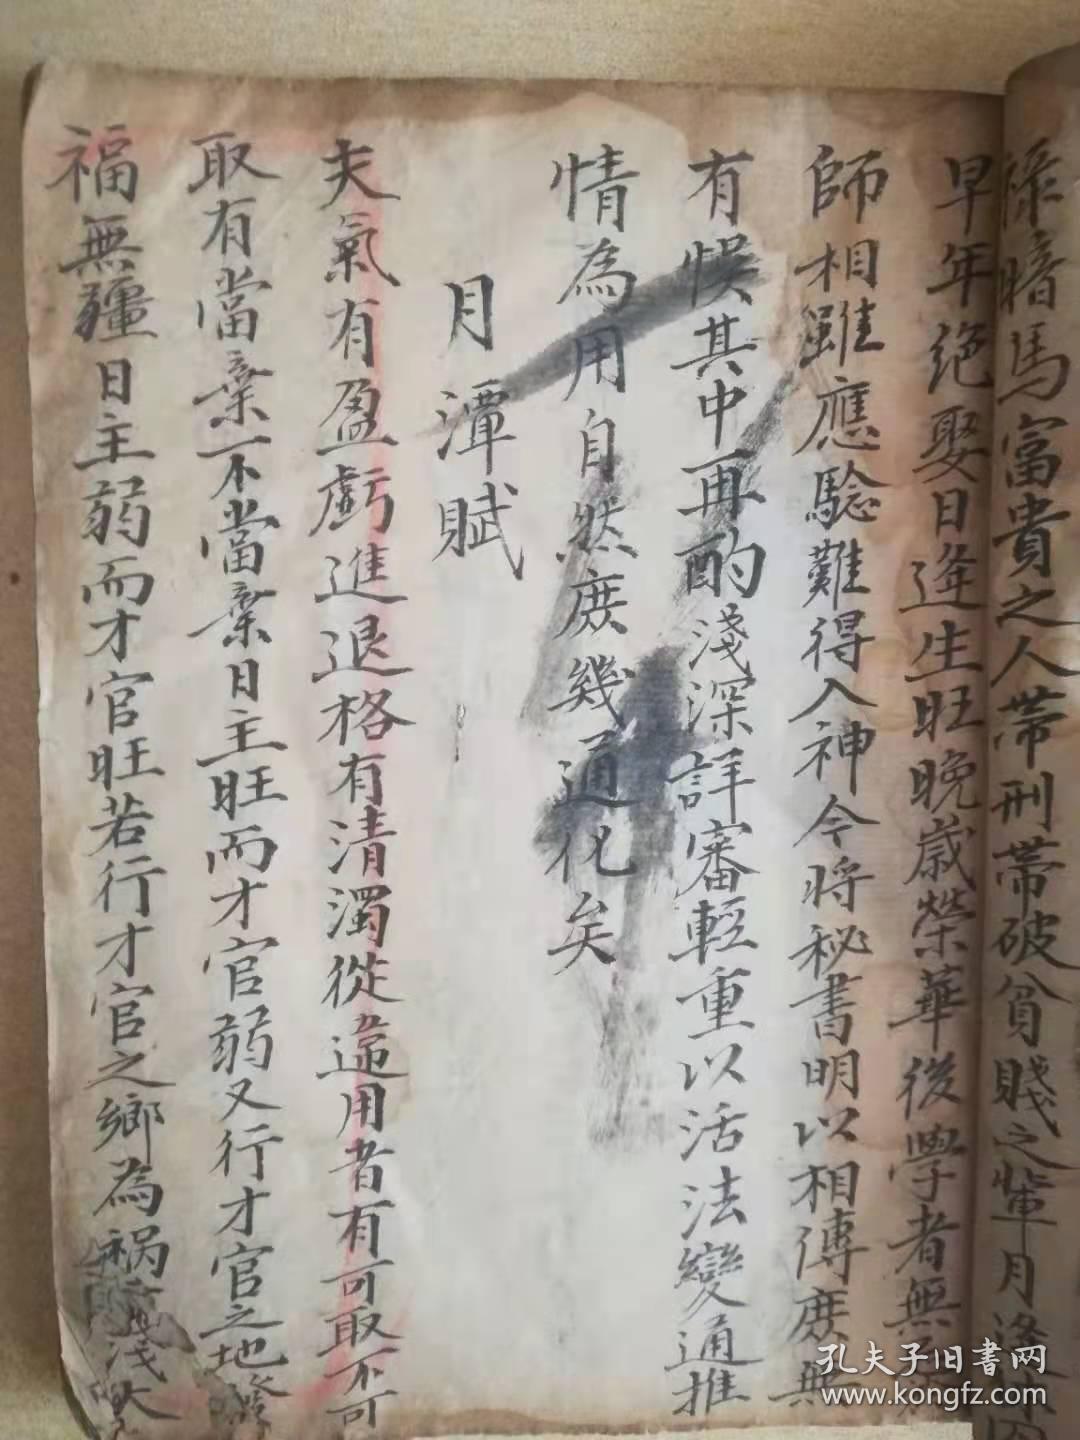 祿暗馬富貴之人帶刑帶破貧賤之輩月逢
早年绝娶日逢生旺晚歲榮華後學者無
師相雖應驗難得入神今将秘書明以相傅庶無
有悞其中再酌淺深詳審輕重以活法變通推
情為用自然庶幾通化矣
月潭賦
夫氣有盈虧進退格有清濁從違用者有可取不可
取有當棄不當棄日主旺而才官弱又行才官之地發
福無疆日主弱而才官旺若行才官之鄉為禍
孔夫子旧书网
www.kongfz.com